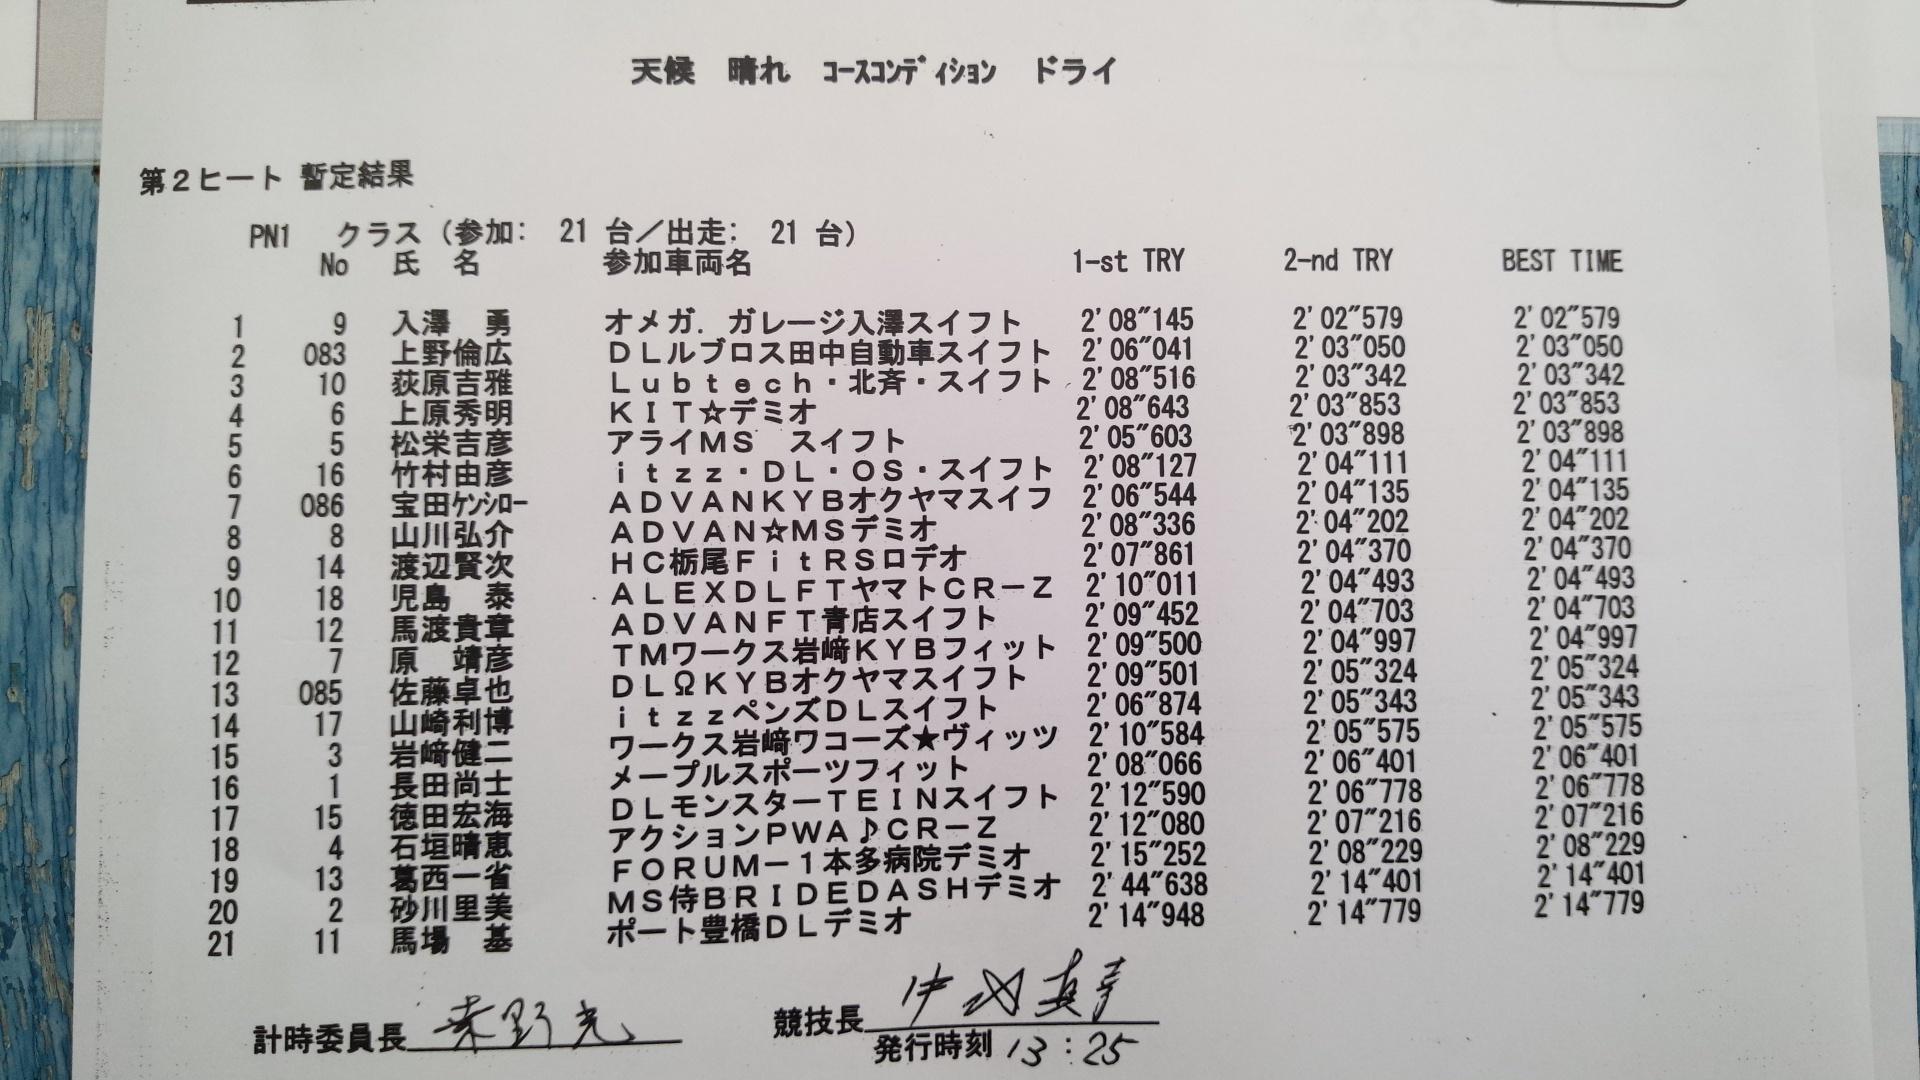 天候 晴れ ｺｰｽｺﾝﾃﾞｨｼｮﾝ ドライ
第２ヒート 暫定結果
PN1 クラス（参加： 21 台／出走： 21 台）
No 氏 名 参加車両名 1-st TRY 2-nd TRY BEST TIME
1 9 入澤 勇 オメガ．ガレージ入澤スイフト 2'08"145 2'02"579 2'02"579
2 083 上野倫広 ＤＬルブロス田中自動車スイフト 2'06"041 2'03"050 2'03"050
3 10 荻原吉雅 Ｌｕｂｔｅｃｈ・北斉・スイフト 2'08"516 2'03"342 2'03"342
4 6 上原秀明 ＫＩＴ☆デミオ 2'08"643 2'03"853 2'03"853
5 5 松栄吉彦 アライＭＳ スイフト 2'05"603 2'03"898 2'03"898
6 16 竹村由彦 ｉｔｚｚ・ＤＬ・ＯＳ・スイフト 2'08"127 2'04"111 2'04"111
7 086 宝田ｹﾝｼﾛｰ ＡＤＶＡＮＫＹＢオクヤマスイフ 2'06"544 2'04"135 2'04"135
8 8 山川弘介 ＡＤＶＡＮ☆ＭＳデミオ 2'08"336 2'04"202 2'04"202
9 14 渡辺賢次 ＨＣ栃尾ＦｉｔＲＳロデオ 2'07"861 2'04"370 2'04"370
10 18 児島 泰 ＡＬＥＸＤＬＦＴヤマトＣＲ－Ｚ 2'10"011 2'04"493 2'04"493
11 12 馬渡貴章 ＡＤＶＡＮＦＴ青店スイフト 2'09"452 2'04"703 2'04"703
12 7 原 靖彦 ＴＭワークス岩﨑ＫＹＢフィット 2'09"500 2'04"997 2'04"997
13 085 佐藤卓也 ＤＬΩＫＹＢオクヤマスイフト 2'09"501 2'05"324 2'05"324
14 17 山崎利博 ｉｔｚｚペンズＤＬスイフト 2'06"874 2'05"343 2'05"343
15 3 岩﨑健二 ワークス岩﨑ワコーズ★ヴィッツ 2'10"584 2'05"575 2'05"575
16 1 長田尚士 メープルスポーツフィット 2'08"066 2'06"401 2'06"401
17 15 徳田宏海 ＤＬモンスターＴＥＩＮスイフト 2'12"590 2'06"778 2'06"778
18 4 石垣晴恵 アクションＰＷＡ♪ＣＲ－Ｚ 2'12"080 2'07"216 2'07"216
19 13 葛西一省 ＦＯＲＵＭ－１本多病院デミオ 2'15"252 2'08"229 2'08"229
20 2 砂川里美 ＭＳ侍ＢＲＩＤＥＤＡＳＨデミオ 2'44"638 2'14"401 2'14"401
21 11 馬場 基 ポート豊橋ＤＬデミオ 2'14"948 2'14"779 2'14"779
計時委員長 競技長
発行時刻 13:25